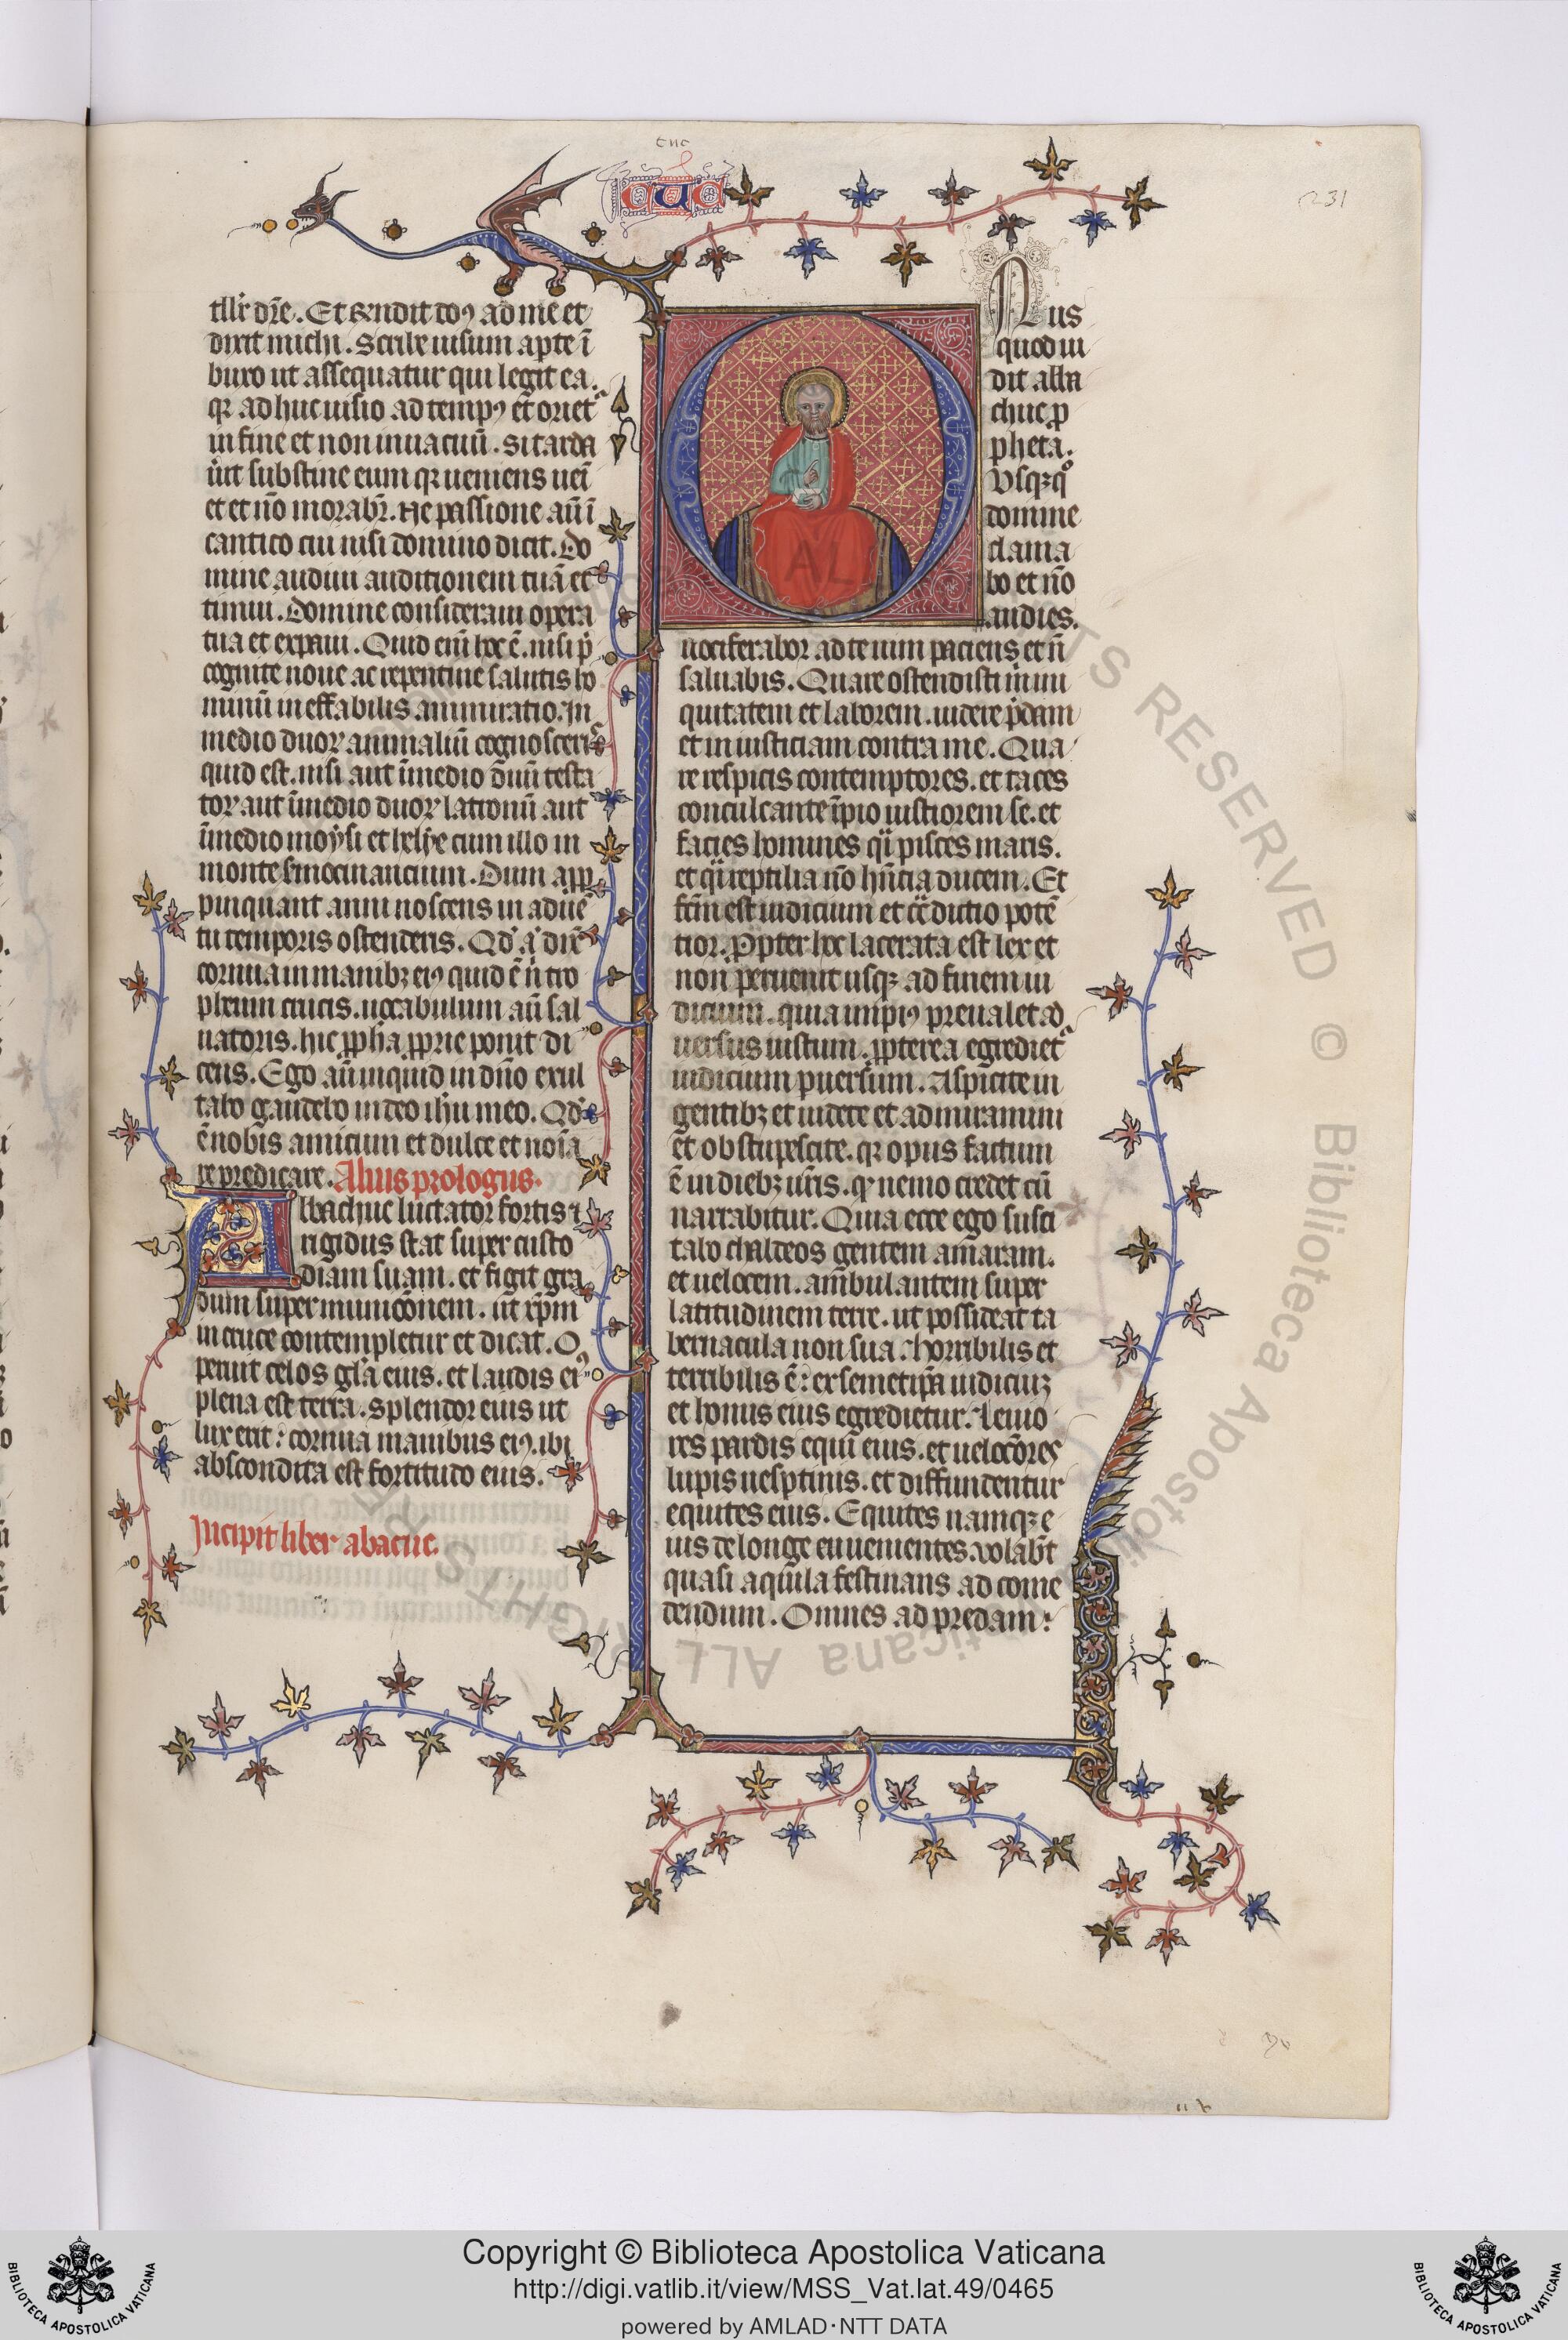 cuc
cuc
231
tllr dñe. Et rñdit dos ad me et
dixit michi. Scribe uisum aperte ī
buxo ut assequatur qui legit ea.
qꝛ adhuc uisio ad tempꝰ et oriet᷑
in fine et non in uacuū. Si tarda
u᷑it substine eum qꝛ ueniens uei
et et nō morabr̄. He passione aū ī
cantico cui nisi domino dicit. Do
mine audiui auditionem tuā et
timui. Domine consideraui opera
tua et expaui. Quid eni hoc ē. nisi p̄
cognite noue ac repentine salutis ho
minū ineffabilis amiratio. In
medio duoꝝ animaliū cognosceris
quid est. nisi aut ī medio duū testa
toꝝ aut ī medio duoꝝ latronū aut
ī medio moysi et helye cum illo in
monte sermocinancium. Dum app
pinquant anni nosceris in aduē
tu temporis ostenderis. Qd᷑ a᷑ dix̄
cornua in manibꝫ eiꝰ quid ē n᷑ tro
pheum crucis. uocabulum aū sal
uatoris. hic ꝓpha ꝓprie ponit di
cens. Ego aū inquid in dño exul
tabo gaudebo in deo ihu meo. Qd᷑
ē nobis amicum et dulce et noia
re predicare. Alius prologus.
Abbachuc luctator fortis ⁊
rigidus stat super custo
diam suam. et figit gra
dum super municōnem. ut xp̄m
in cruce contempletur et dicat. O
peruit celos gla eius. et laudis eiꝰ
plena est terra. Splendor eius ut
lux erit: cornua manibus eiꝰ. ibi
abscondita est fortitudo eius.
Incipit liber abacuc.
Onus
quod ui
dit aba
chuc ꝓ
pheta.
Vsqꝫq̊
domine
clama
bo et nō
audies.
uociferabor ad te uim paciens et n̄
saluabis. Quare ostendisti m᷑ ini
quitatem et laborem. uidere p᷑dam
et iniusticiam contra me. Qua
re respicis contemptores. et taces
conculcante īpio iustiorem se. et
facies homines q̈ı pisces maris.
et q̈ı reptilia nō hñcia ducem. Et
fc̄m est iudicium et c̄dictio potē
tior. Ꝓpter hoc lacerata est lex et
non peruenit usqꝫ ad finem iu
dicium. quia impiꝰ preualet ad
uersus iustum. ꝓpterea egrediet᷑
iudicium puersum. Aspicite in
gentibꝫ et uidete et admiramini
et obstupescite. qꝛ opus factum
ē in diebꝫ ur̄is. qꝫ nemo credet cū
narrabitur. Quia ecce ego susci
tabo chaldeos gentem amaram.
et uelocem. ambulantem super
latitudinem terre. ut possideat ta
bernacula non sua. horribilis et
terribilis ē: ex semetip̄a iudiciuꝫ
et honus eius egredietur. Leuio
res pardis equi eius. et uelocōres
lupis uesp̄tinis. et diffundentur
equites eius. Equites namqꝫ e
ius de longe euenientes. uolabūt
quasi aquila festinans ad come
dendum. Omnes ad predam:
ALL RIGHTS RESERVED © Biblioteca Apostolica Vaticana
Copyright © Biblioteca Apostolica Vaticana
http://digi.vatlib.it/view/MSS_Vat.lat.49/0465
powered by AMLAD·NTT DATA
BIBLIOTECA APOSTOLICA VATICANA
BIBLIOTECA APOSTOLICA VATICANA